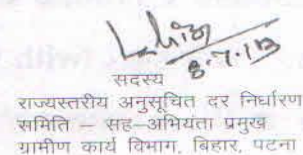 8.7.13
सदस्य
राज्यस्तरीय अनुसूचित दर निर्धारण
समिति – सह–अभियंता प्रमुख
ग्रामीण कार्य विभाग, बिहार, पटना